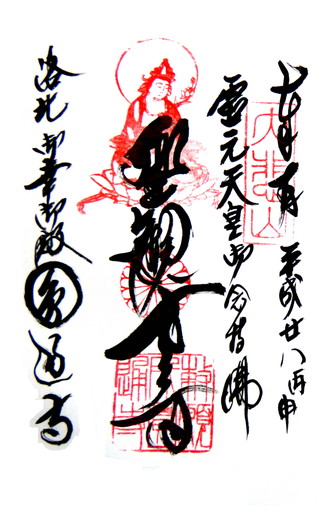 大悲山
平成廿八丙申
霊元天皇御念持佛
聖觀世音
洛北 御幸御殿 圓通寺